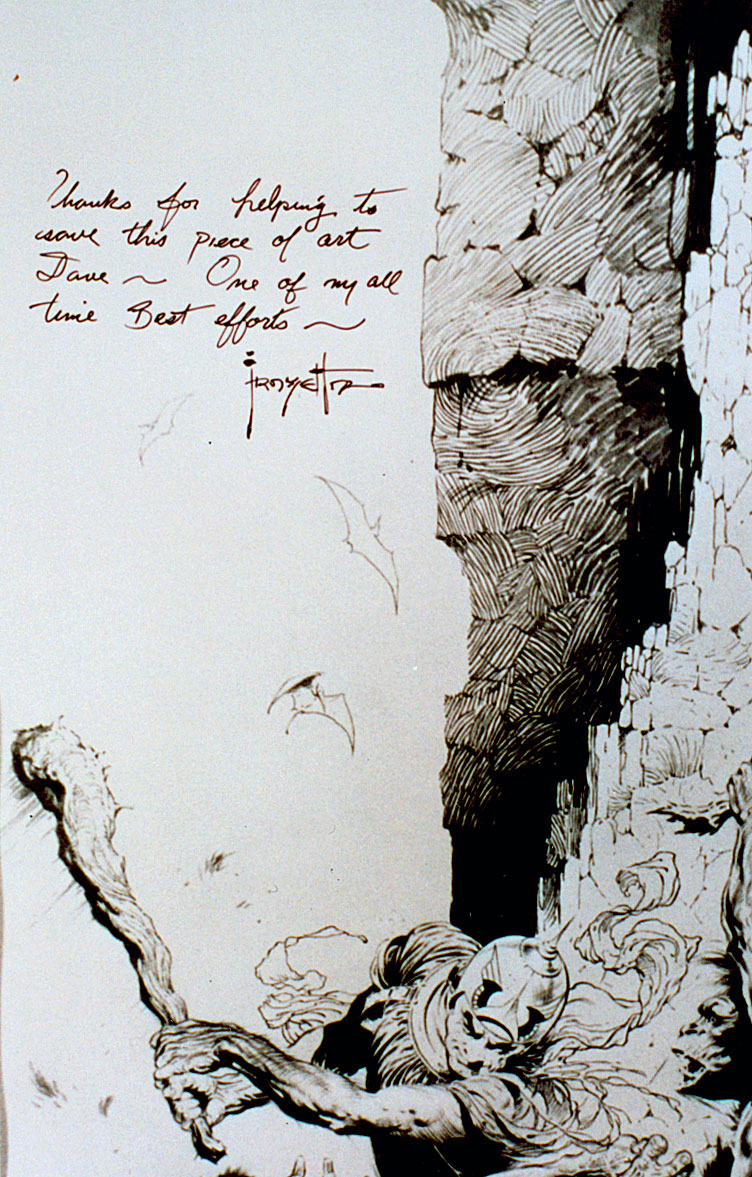 Thanks for helping to
save this piece of art
Dave ~ One of my all
time Best efforts ~
Frazetta